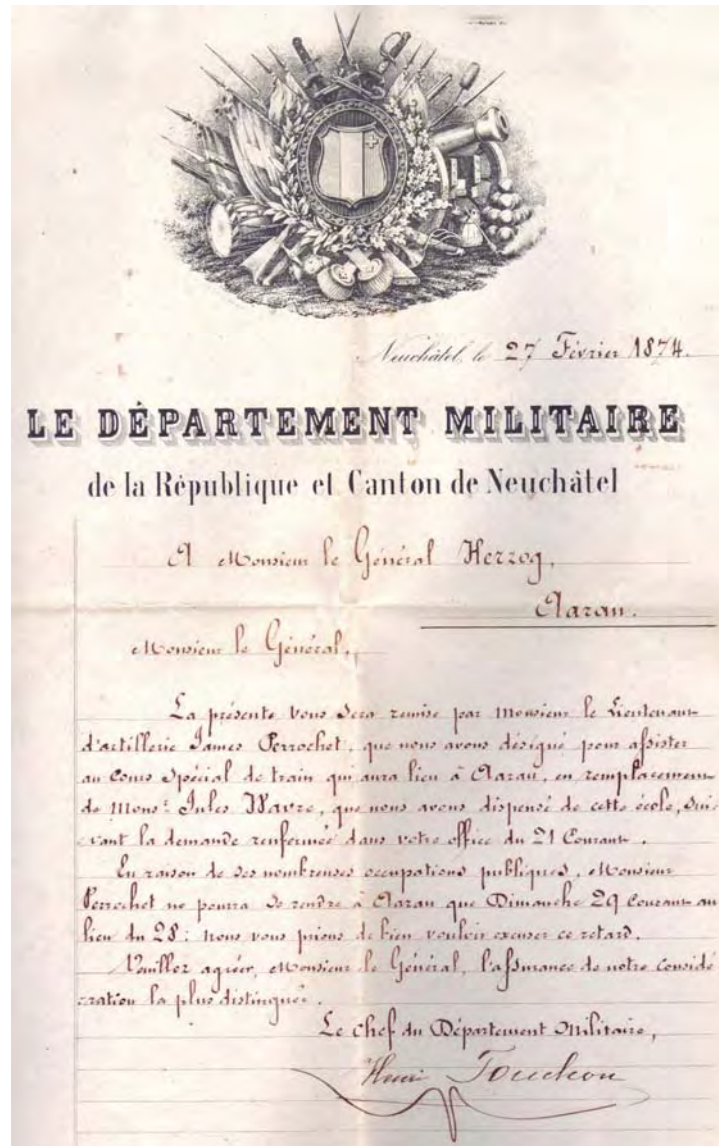 Neuchâtel, le 27 Février 1874.
LE DÉPARTEMENT MILITAIRE
de la République et Canton de Neuchâtel
A Monsieur le Général Herzog,
Aarau.
Monsieur le Général,
La présente vous sera remise par Monsieur le Lieutenant
d'artillerie James Perrochet, que nous avons désigné pour assister
au Cours Spécial de train qui aura lieu à Aarau, en remplacement
de Mons.r Jules Wavre, que nous avons dispensé de cette école, sui
vant la demande renfermée dans votre office du 21 Courant.
En raison de ses nombreuses occupations publiques, Monsieur
Perrochet ne pourra se rendre à Aarau que Dimanche 29 Courant au
lieu du 28: nous vous prions de bien vouloir excuser ce retard.
Veuillez agréer, Monsieur le Général, l'assurance de notre considé
ration la plus distinguée.
Le Chef du Département Militaire,
Henri Touchon